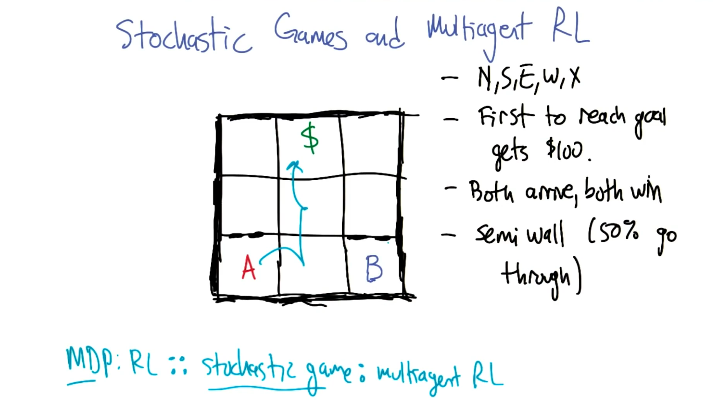 Stochastic Games and Multiagent RL
- N,S,E,W,X
- First to reach goal
gets $100.
- Both arrive, both win
- semi wall (50% go
through)
$
A B
MDP: RL :: stochastic game: multiagent RL